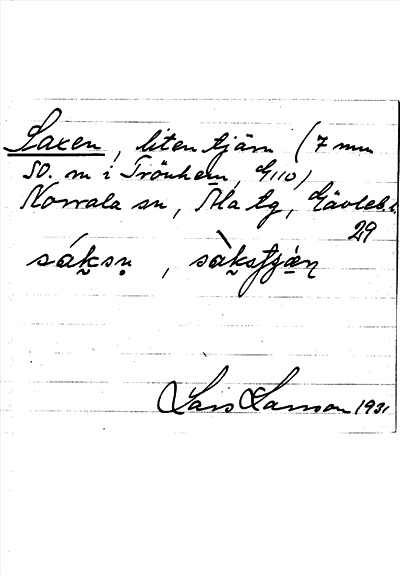 Saxen, liten tjärn (7 mm
SO. m i Trönhem, G110)
Norrala sn, Ala tg, Gävlebl.
29
sáksn̥, sàkstjæ̀ṇ
Lars Larsson 1931